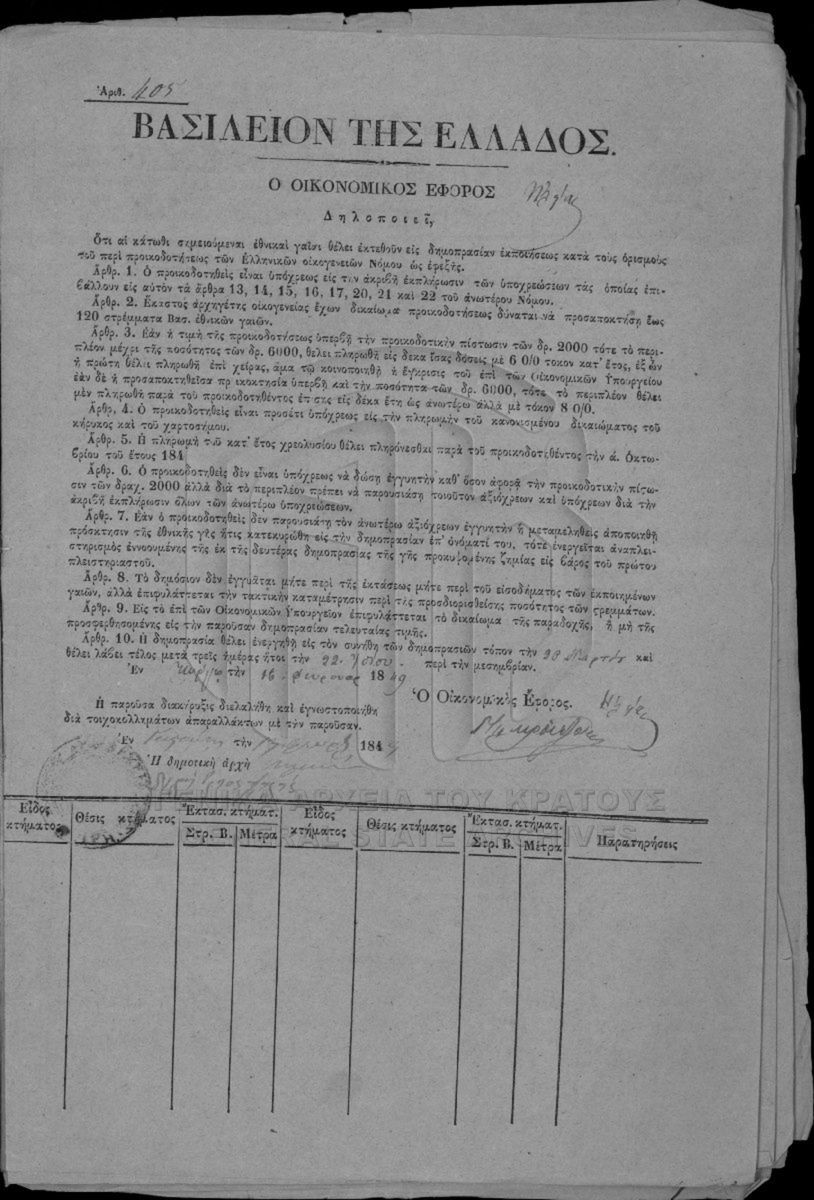 Ἀριθ. 405
ΒΑΣΙΛΕΙΟΝ ΤΗΣ ΕΛΛΑΔΟΣ.
Ο ΟΙΚΟΝΟΜΙΚΟΣ ΕΦΟΡΟΣ
Δηλοποιεῖ,
Ὅτι αἱ κάτωθι σημειούμεναι ἐθνικαὶ γαῖαι θέλει ἐκτεθοῦν εἰς δημοπρασίαν ἐκποιήσεως κατὰ τοὺς ὁρισμοὺς
τοῦ περὶ προικοδοτήσεως τῶν Ἑλληνικῶν οἰκογενειῶν Νόμου ὡς ἐφεξῆς.
Ἄρθρ. 1. Ὁ προικοδοτηθεὶς εἶναι ὑπόχρεως εἰς τὴν ἀκριβῆ ἐκπλήρωσιν τῶν ὑποχρεώσεων τὰς ὁποίας ἐπι-
βάλλουν εἰς αὐτὸν τὰ ἄρθρα 13, 14, 15, 16, 17, 20, 21 καὶ 22 τοῦ ἀνωτέρω Νόμου.
Ἄρθρ. 2. Ἕκαστος ἀρχηγέτης οἰκογενείας ἔχων δικαίωμα προικοδοτήσεως δύναται νὰ προσαποκτήσῃ ἕως
120 στρέμματα Βασ. ἐθνικῶν γαιῶν.
Ἄρθρ. 3. Ἐὰν ἡ τιμὴ τῆς προικοδοτήσεως ὑπερβῇ τὴν προικοδοτικὴν πίστωσιν τῶν δρ. 2000 τότε τὸ περι-
πλέον μέχρι τῆς ποσότητος τῶν δρ. 6000, θέλει πληρωθῆ εἰς δέκα ἴσας δόσεις μὲ 6 0/0 τόκον κατ' ἔτος, ἐξ ὧν
ἡ πρώτη θέλει πληρωθῆ ἐπὶ χεῖρας, ἅμα τῷ κοινοποιηθῇ ἡ ἔγκρισις τοῦ ἐπὶ τῶν Οἰκονομικῶν Ὑπουργείου
ἐὰν δὲ ἡ προσαποκτηθεῖσα πρ εκοκτησία ὑπερβῇ καὶ τὴν ποσότητα τῶν δρ. 6000, τότε τὸ περιπλέον θέλει
μὲν πληρωθῆ παρὰ τοῦ προικοδοτηθέντος ἐπ σης εἰς δέκα ἔτη ὡς ἀνωτέρω ἀλλὰ μὲ τόκον 8 0/0.
Ἄρθρ. 4. Ὁ προικοδοτηθεὶς εἶναι προσέτι ὑπόχρεως εἰς τὴν πληρωμὴν τοῦ κανονισμένου δικαιώματος τοῦ
κήρυκος καὶ τοῦ χαρτοσήμου.
Ἄρθρ. 5. Ἡ πληρωμὴ τοῦ κατ' ἔτος χρεολυσίου θέλει πληρόνεσθαι παρὰ τοῦ προικοδοτηθέντος τὴν ά. Ὀκτω-
βρίου τοῦ ἔτους 184
Ἄρθρ. 6. Ὁ προικοδοτηθεὶς δὲν εἶναι ὑπόχρεως νὰ δώσῃ ἐγγυητὴν καθ' ὅσον ἀφορᾷ τὴν προικοδοτικὴν πίστω-
σιν τῶν δραχ. 2000 ἀλλὰ διὰ τὸ περιπλέον πρέπει νὰ παρουσιάσῃ τοιοῦτον ἀξιόχρεων καὶ ὑπόχρεων διὰ τὴν
ἀκριβῆ ἐκπλήρωσιν ὅλων τῶν ἀνωτέρω ὑποχρεώσεων.
Ἄρθρ. 7. Ἐὰν ὁ προικοδοτηθεὶς δὲν παρουσιάσῃ τὸν ἀνωτέρω ἀξιόχρεων ἐγγυητὴν ἢ μεταμεληθεὶς ἀποποιηθῇ
πρόσκτησιν τῆς ἐθνικῆς γῆς ἥτις κατεκυρώθη εἰς τὴν δημοπρασίαν ἐπ' ὀνόματί του, τότε ἐνεργεῖται ἀναπλει-
στηριασμὸς ἐννοουμένης τῆς ἐκ τῆς δευτέρας δημοπρασίας τῆς γῆς προκυψομένης ζημίας εἰς βάρος τοῦ πρώτου
πλειστηριαστοῦ.
Ἄρθρ. 8. Τὸ δημόσιον δὲν ἐγγυᾶται μήτε περὶ τῆς ἐκτάσεως μήτε περὶ τοῦ εἰσοδήματος τῶν ἐκποιημένων
γαιῶν, ἀλλὰ ἐπιφυλάττεται τὴν τακτικὴν καταμέτρησιν περὶ τῆς προσδιορισθείσης ποσότητος τῶν στρεμμάτων.
Ἄρθρ. 9. Εἰς τὸ ἐπὶ τῶν Οἰκονομικῶν Ὑπουργεῖον ἐπιφυλάττεται τὸ δικαίωμα τῆς παραδοχῆς, ἢ μὴ τῆς
προσφερθησομένης εἰς τὴν παροῦσαν δημοπρασίαν τελευταίας τιμῆς.
Ἄρθρ. 10. Ἡ δημοπρασία θέλει ἐνεργηθῆ εἰς τὸν συνήθη τῶν δημοπρασιῶν τόπον τὴν 20 Μαρτίου καὶ
θέλει λάβει τέλος μετὰ τρεῖς ἡμέρας ἤτοι τὴν 22 ἰδίου περὶ τὴν μεσημβρίαν.
Ἐν τὴν 16 Φεβρουαρ 1849
Ὁ Οἰκονομικὸς Ἔφορος.
Ἡ παροῦσα διακήρυξις διελαλήθη καὶ ἐγνωστοποιήθη
διὰ τοιχοκολλημάτων ἀπαραλλάκτων μὲ τὴν παροῦσαν.
Ἐν τὴν 184
Ἡ δημοτικὴ ἀρχὴ
ΓΕΝΙΚΑ ΑΡΧΕΙΑ ΤΟΥ ΚΡΑΤΟΥΣ
GENERAL STATE ARCHIVES
Εἶδος κτήματος Θέσις κτήματος Ἔκτασ. κτήματ. Στρ. Β. Μέτρα Εἶδος κτήματος Θέσις κτήματος Ἔκτασ. κτήματ. Στρ. Β. Μέτρα Παρατηρήσεις